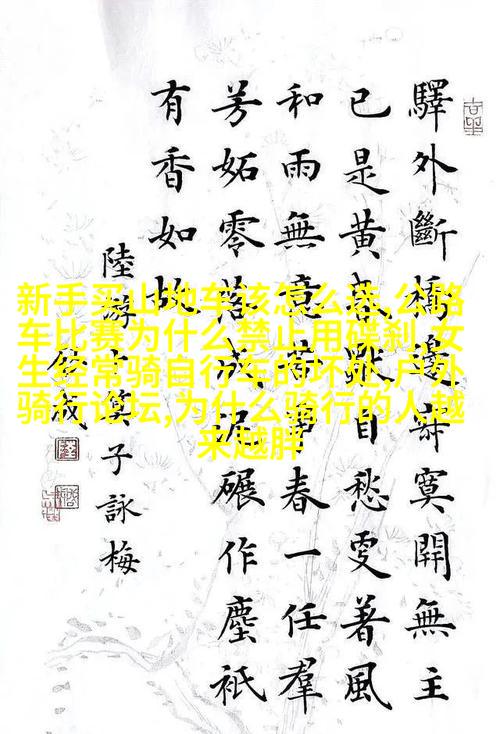 驛外斷橋邊寂寞開無主
已是黃昏獨自愁更著風
和雨無意苦爭春一任羣
芳妬零落成泥碾作塵祇
有香如故
陸游卜算子詠梅
新手买山地车该怎么选,公路
车比赛为什么禁止用碟刹,女
生经常骑自行车的坏处,户外
骑行论坛,为什么骑行的人越
来越胖